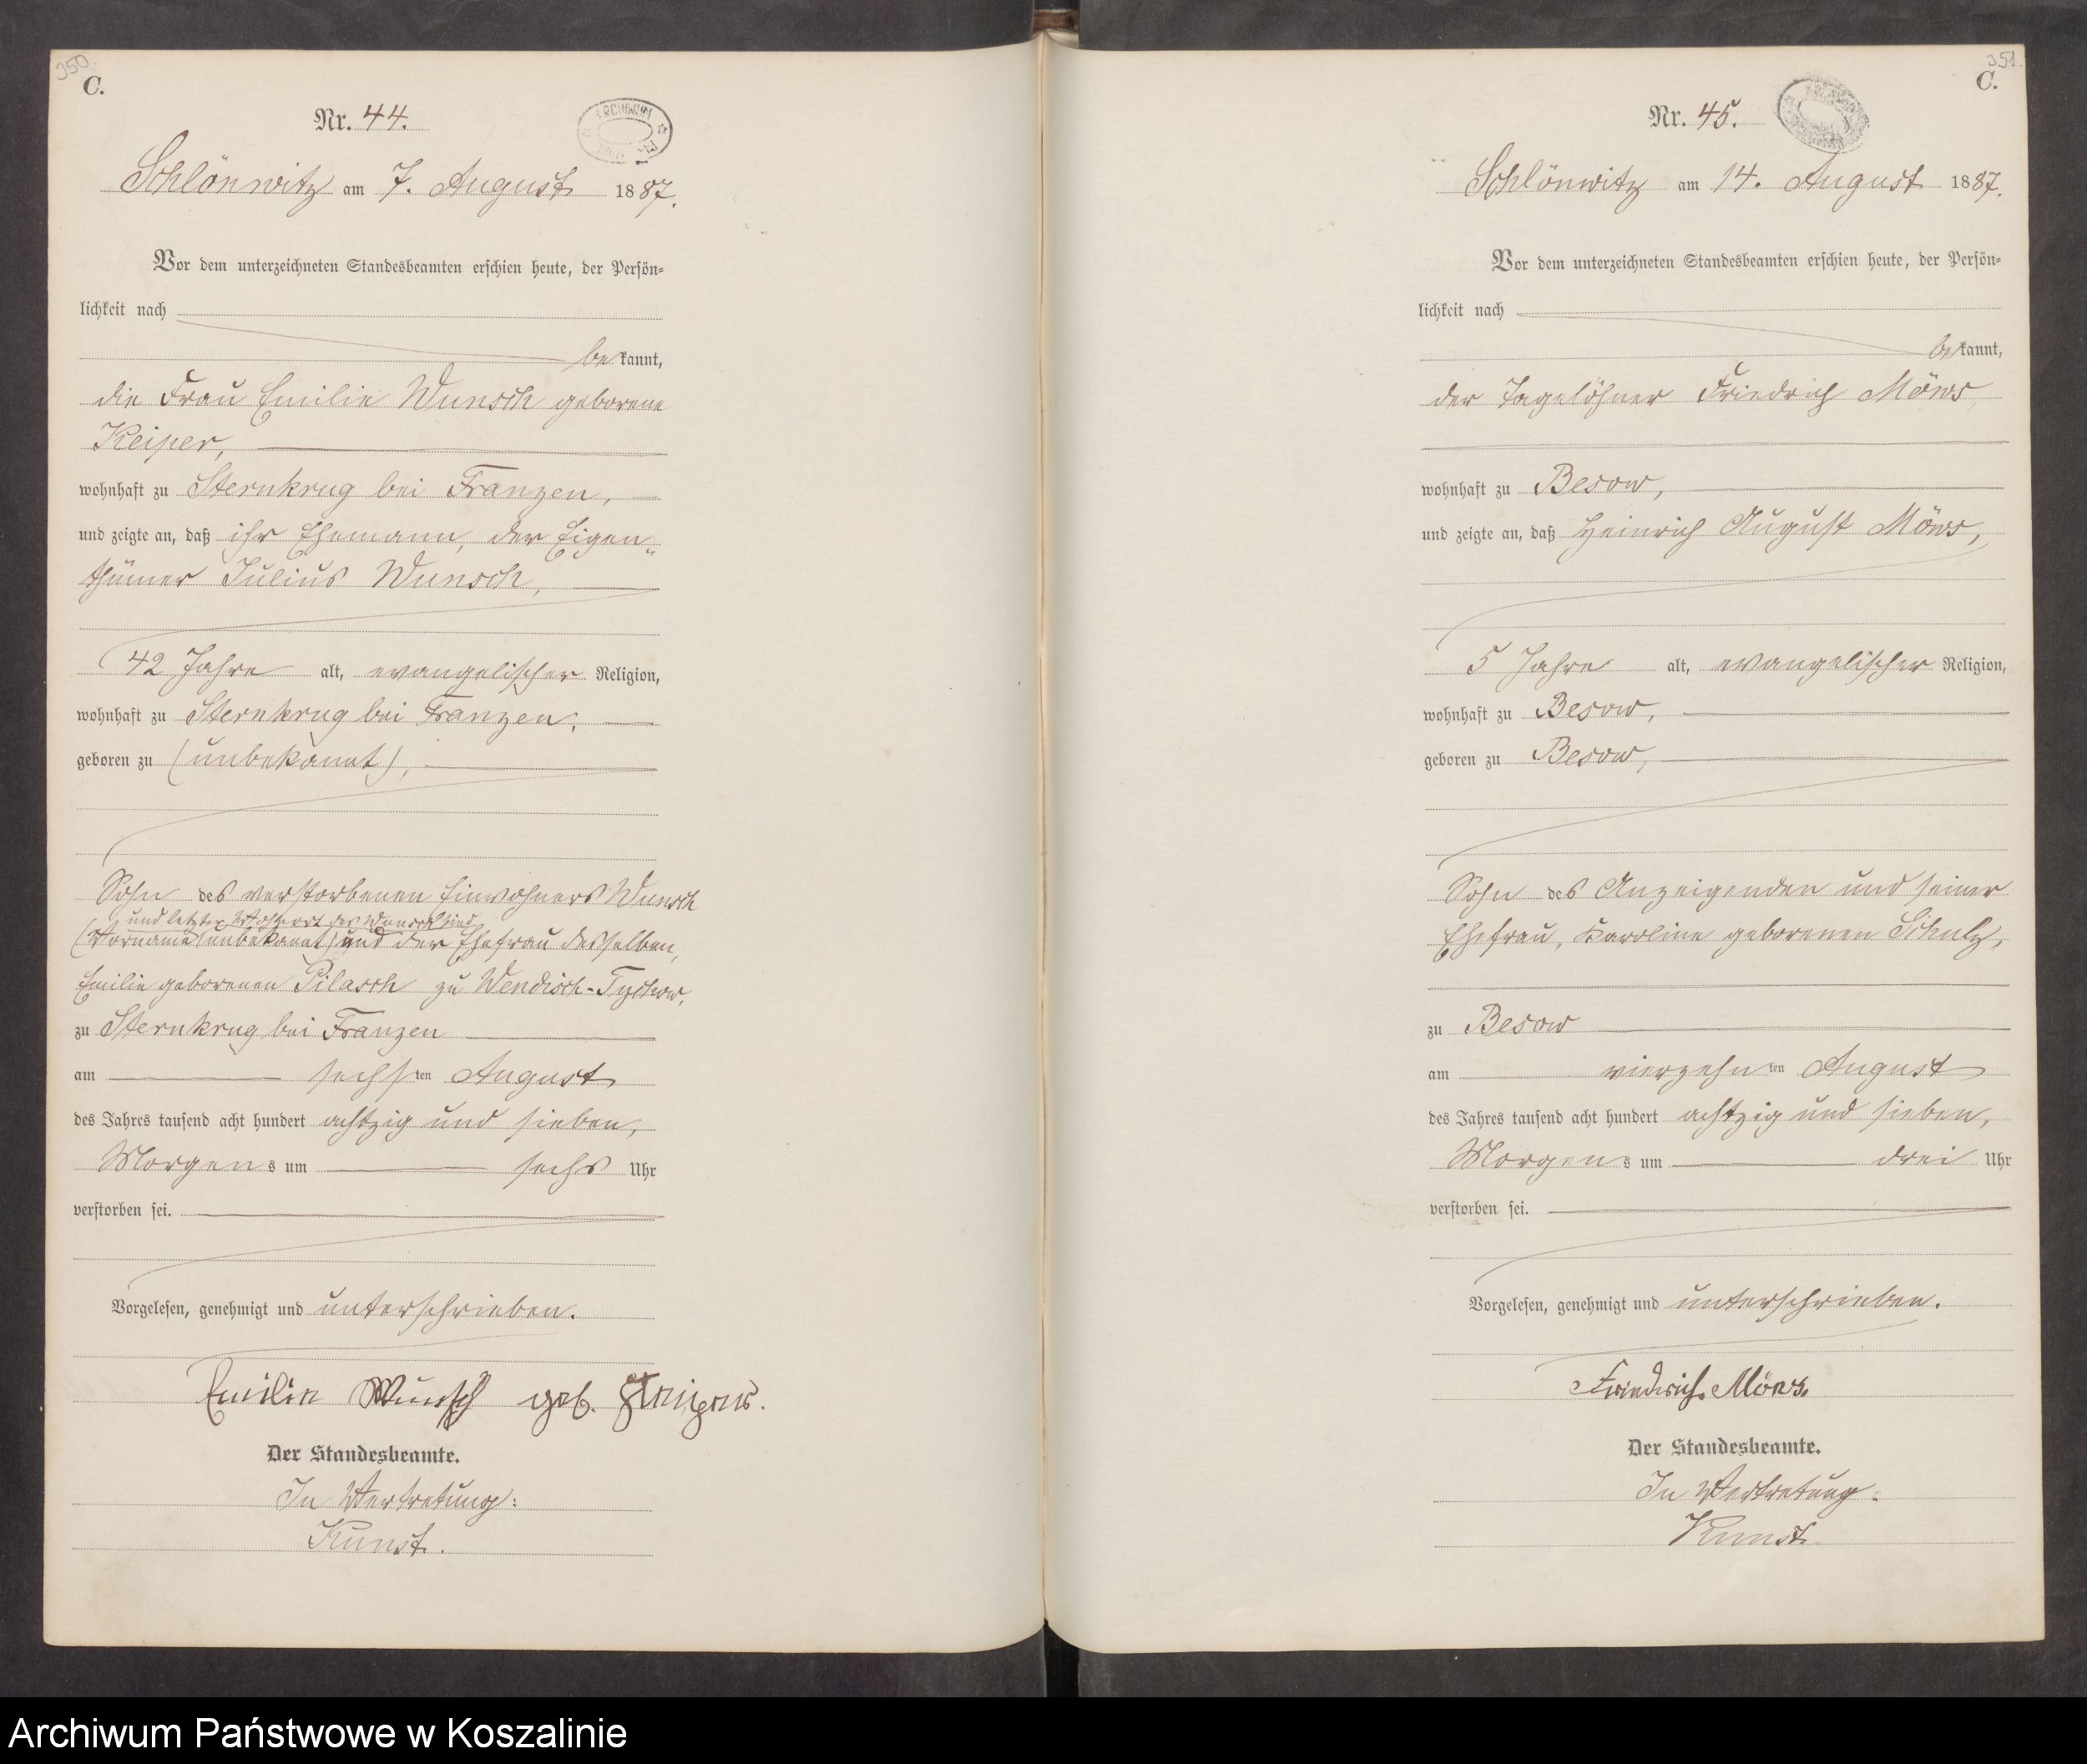 350.
C.
Nr. 44.
ARCHIWUM
Schlönwitz am 7. August 1887.
Vor dem unterzeichneten Standesbeamten erschien heute, der Persön-
lichkeit nach
bekannt,
die Frau Emilie Wunsch geborene
Keiper,
wohnhaft zu Sternkrug bei Franzen,
und zeigte an, daß ihr Ehemann, der Eigen-
thümer Julius Wunsch,
42 Jahre alt, evangelischer Religion,
wohnhaft zu Sternkrug bei Franzen,
geboren zu (unbekannt),
Sohn des verstorbenen Einwohners Wunsch
und letzter Wohnort des Wunsch sind
(Vorname unbekannt) und der Ehefrau desselben,
Emilie geborenen Pilasch zu Wendisch-Tychow,
zu Sternkrug bei Franzen
am sechsten August
des Jahres tausend acht hundert achtzig und sieben,
Morgens um sechs Uhr
verstorben sei.
Vorgelesen, genehmigt und unterschrieben.
Emilie Wunsch geb.
Der Standesbeamte.
In Vertretung:
Kunst.
351.
C.
Nr. 45.
Schlönwitz am 14. August 1887.
Vor dem unterzeichneten Standesbeamten erschien heute, der Persön-
lichkeit nach
bekannt,
der Tagelöhner Friedrich Möws,
wohnhaft zu Besow,
und zeigte an, daß Heinrich August Möws,
5 Jahre alt, evangelischer Religion,
wohnhaft zu Besow,
geboren zu Besow,
Sohn des Anzeigenden und seiner
Ehefrau, Karoline geborenen Schulz,
zu Besow
am vierzehnten August
des Jahres tausend acht hundert achtzig und sieben,
Morgens um drei Uhr
verstorben sei.
Vorgelesen, genehmigt und unterschrieben.
Friedrich Möws.
Der Standesbeamte.
In Vertretung.
Kunst.
Archiwum Państwowe w Koszalinie